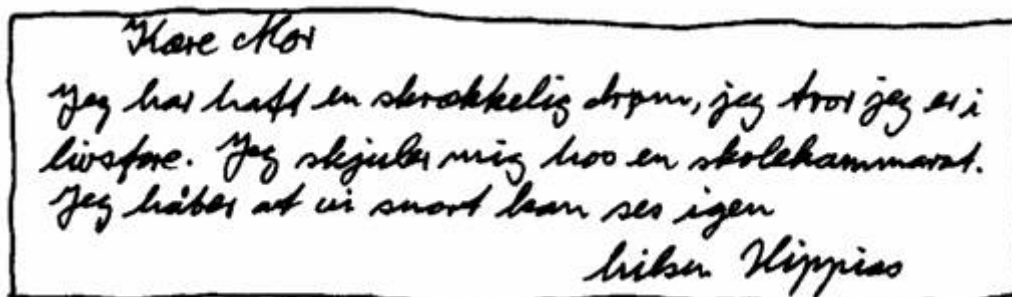 Kære Mor
Jeg har haft en skrækkelig drøm, jeg tror jeg er i
livsfare. Jeg skjuler mig hos en skolekammarat.
Jeg håber at vi snart kan ses igen
hilsen Hippias